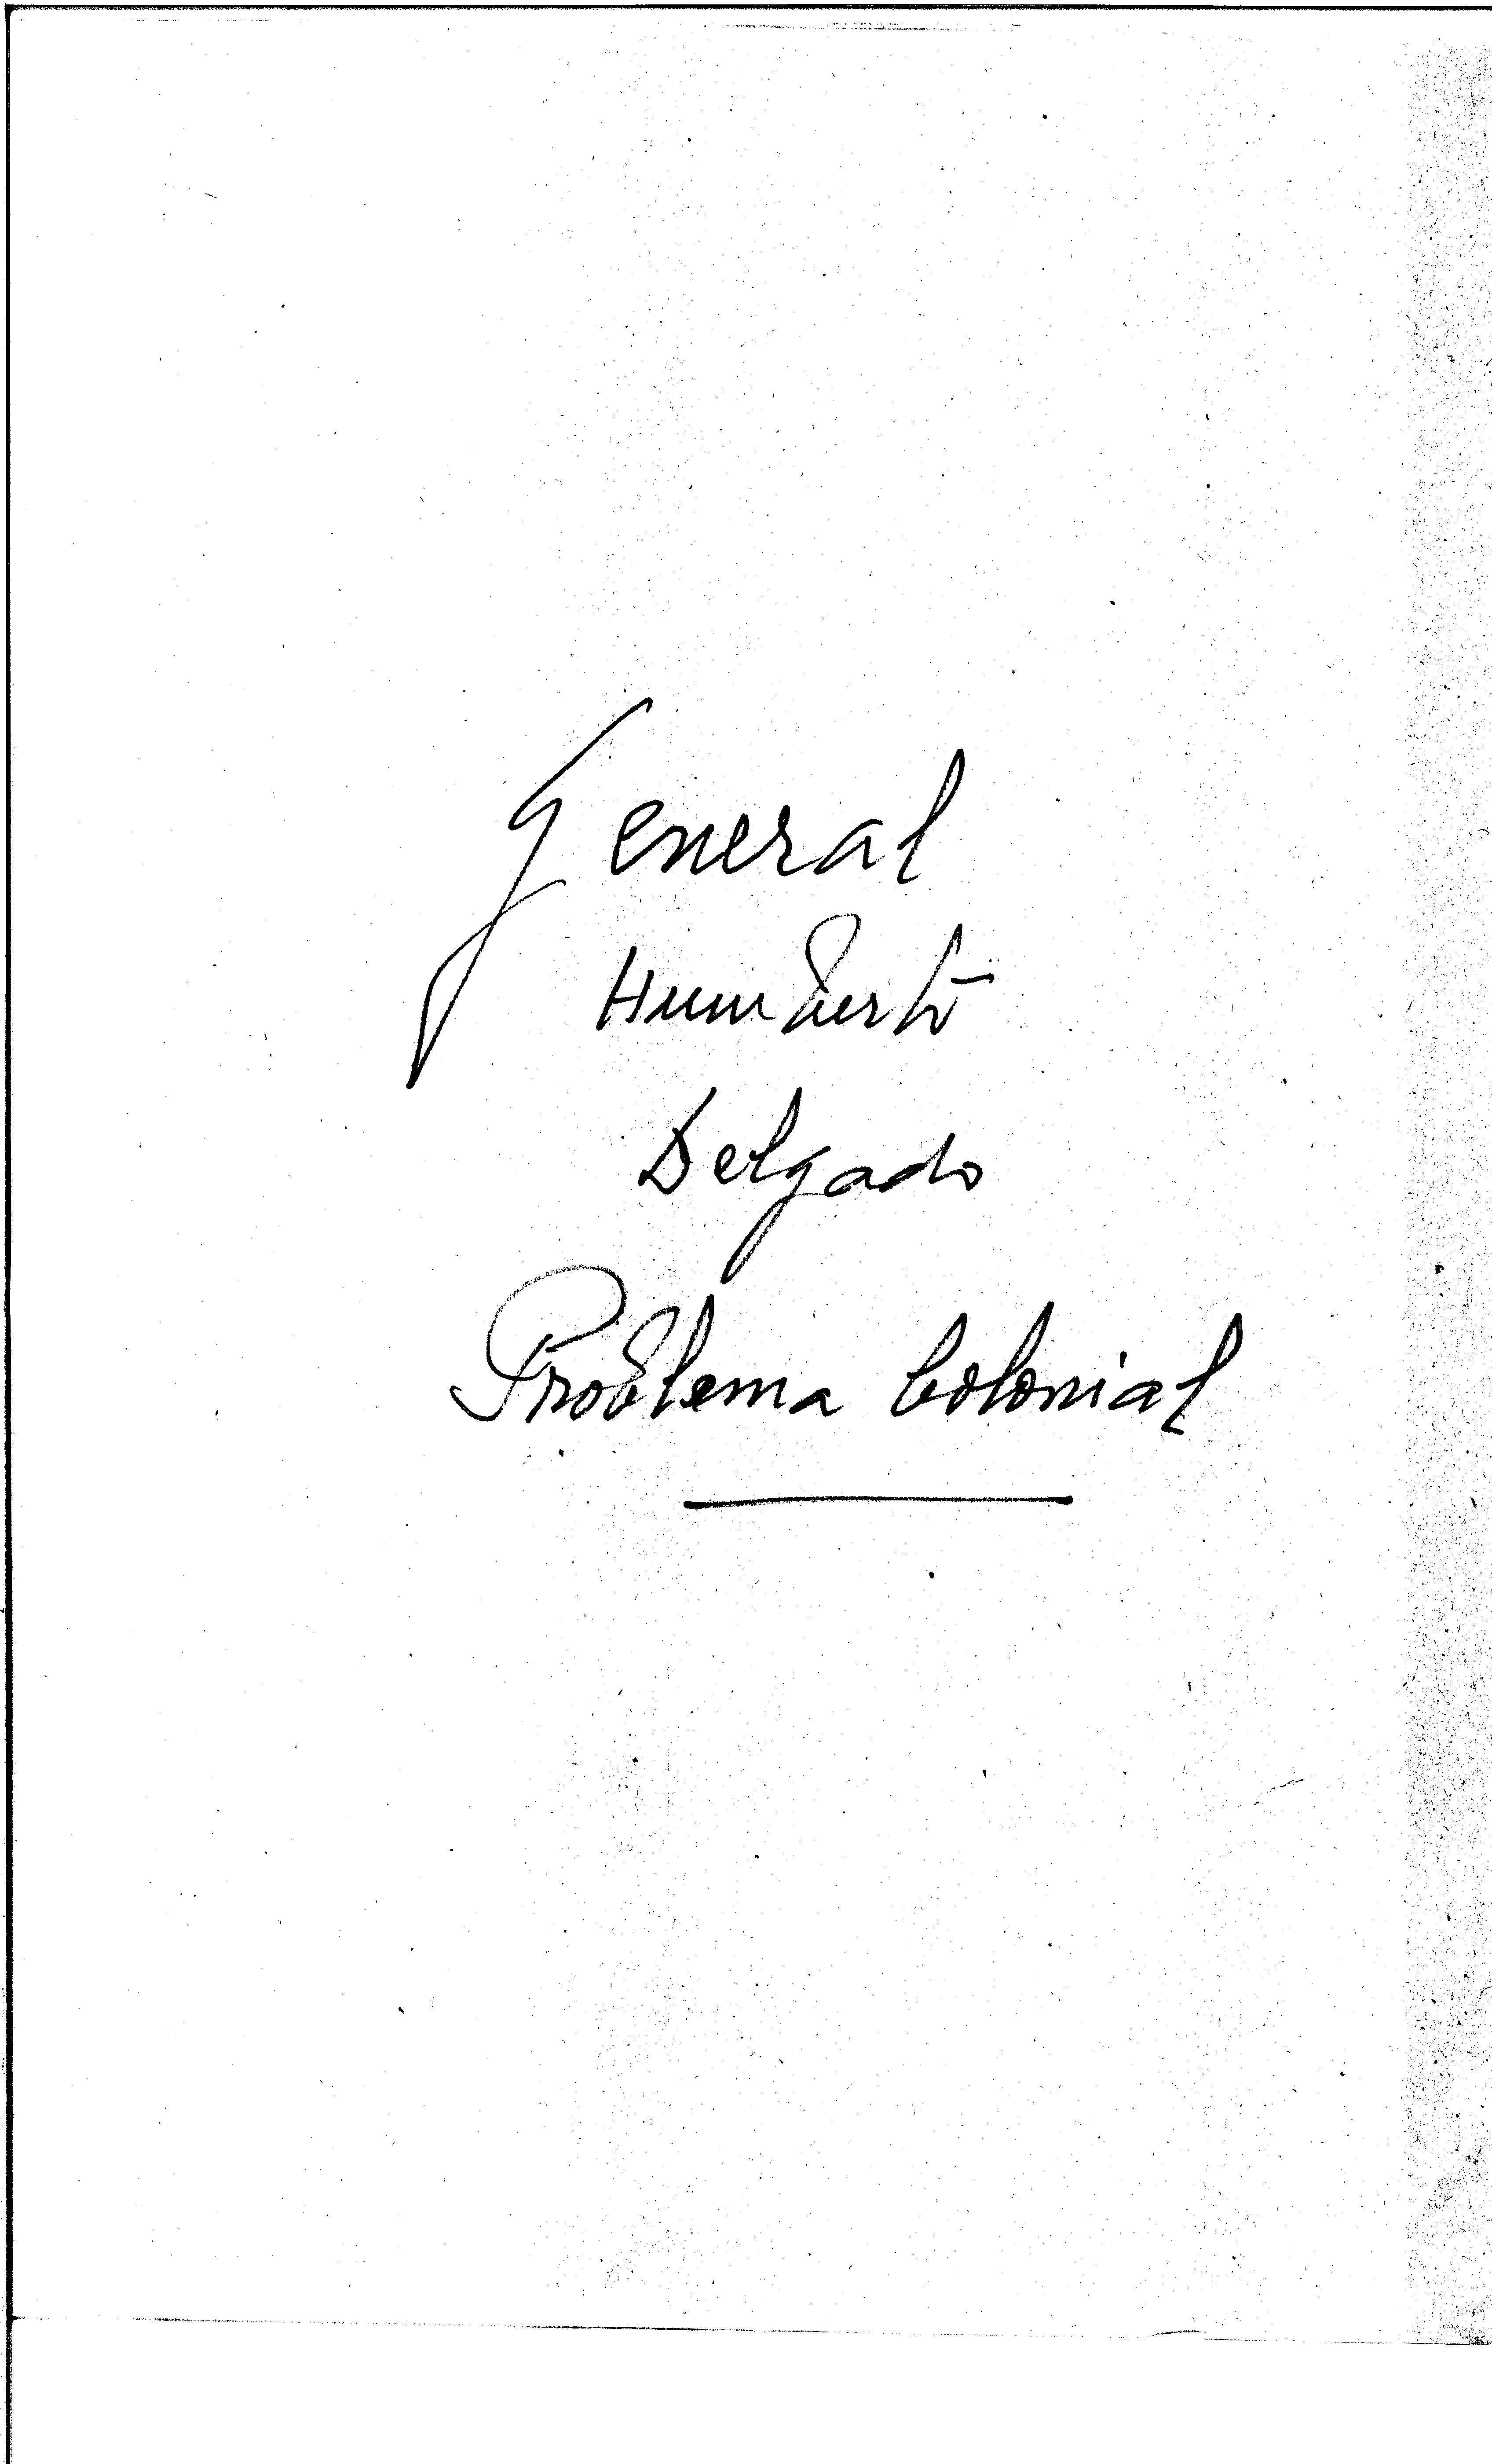 General
Humberto
Delgado
Problema Colonial